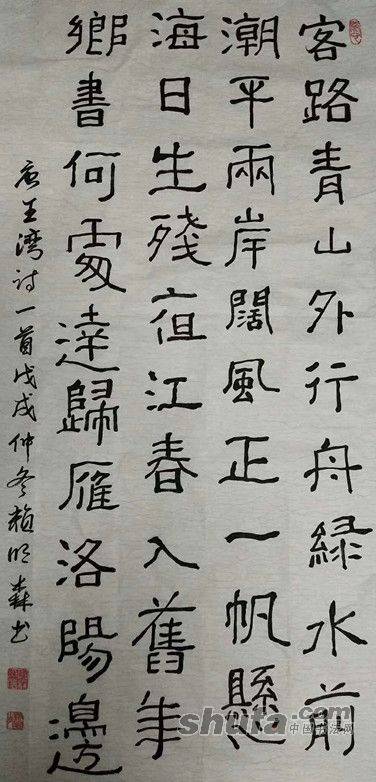 客路青山外行舟緑水前
潮平兩岸闊風正一帆懸
海日生殘亱江春入舊年
鄉書何處達歸雁洛陽邊
唐王湾诗一首戊戌仲冬赖明森书
shufa.com
中国书法网